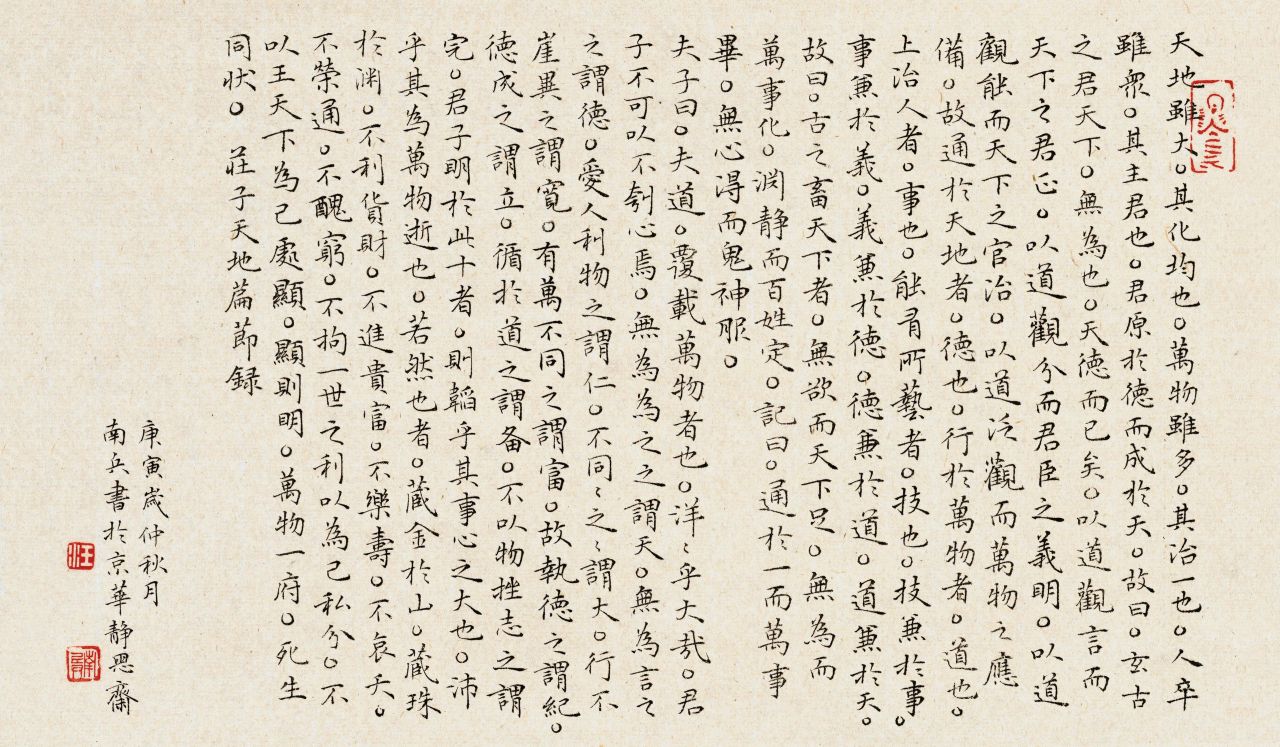 天地雖大。其化均也。萬物雖多。其治一也。人卒
雖衆。其主君也。君原於德而成於天。故曰。玄古
之君天下。無為也。天德而已矣。以道觀言而
天下之君正。以道觀分而君臣之義明。以道
觀能而天下之官治。以道泛觀而萬物之應
備。故通於天地者。德也。行於萬物者。道也。
上治人者。事也。能有所藝者。技也。技兼於事。
事兼於義。義兼於德。德兼於道。道兼於天。
故曰。古之畜天下者。無欲而天下足。無為而
萬事化。淵静而百姓定。記曰。通於一而萬事
畢。無心得而鬼神服。
夫子曰。夫道。覆載萬物者也。洋〻乎大哉。君
子不可以不刳心焉。無為為之之謂天。無為言之
之謂德。愛人利物之謂仁。不同〻之〻謂大。行不
崖異之謂寬。有萬不同之謂富。故執德之謂紀。
德成之謂立。循於道之謂备。不以物挫志之謂
完。君子明於此十者。則韜乎其事心之大也。沛
乎其為萬物逝也。若然也者。藏金於山。藏珠
於渊。不利貨財。不進貴富。不樂壽。不哀夭。
不榮通。不醜窮。不拘一世之利以為己私分。不
以王天下為己處顯。顯則明。萬物一府。死生
同狀。 莊子天地篇節録
庚寅歲仲秋月
南兵書於京華静思齋
汪